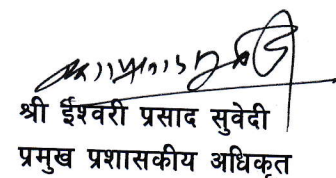 श्री ईश्वरी प्रसाद सुवेदी
प्रमुख प्रशासकीय अधिकृत